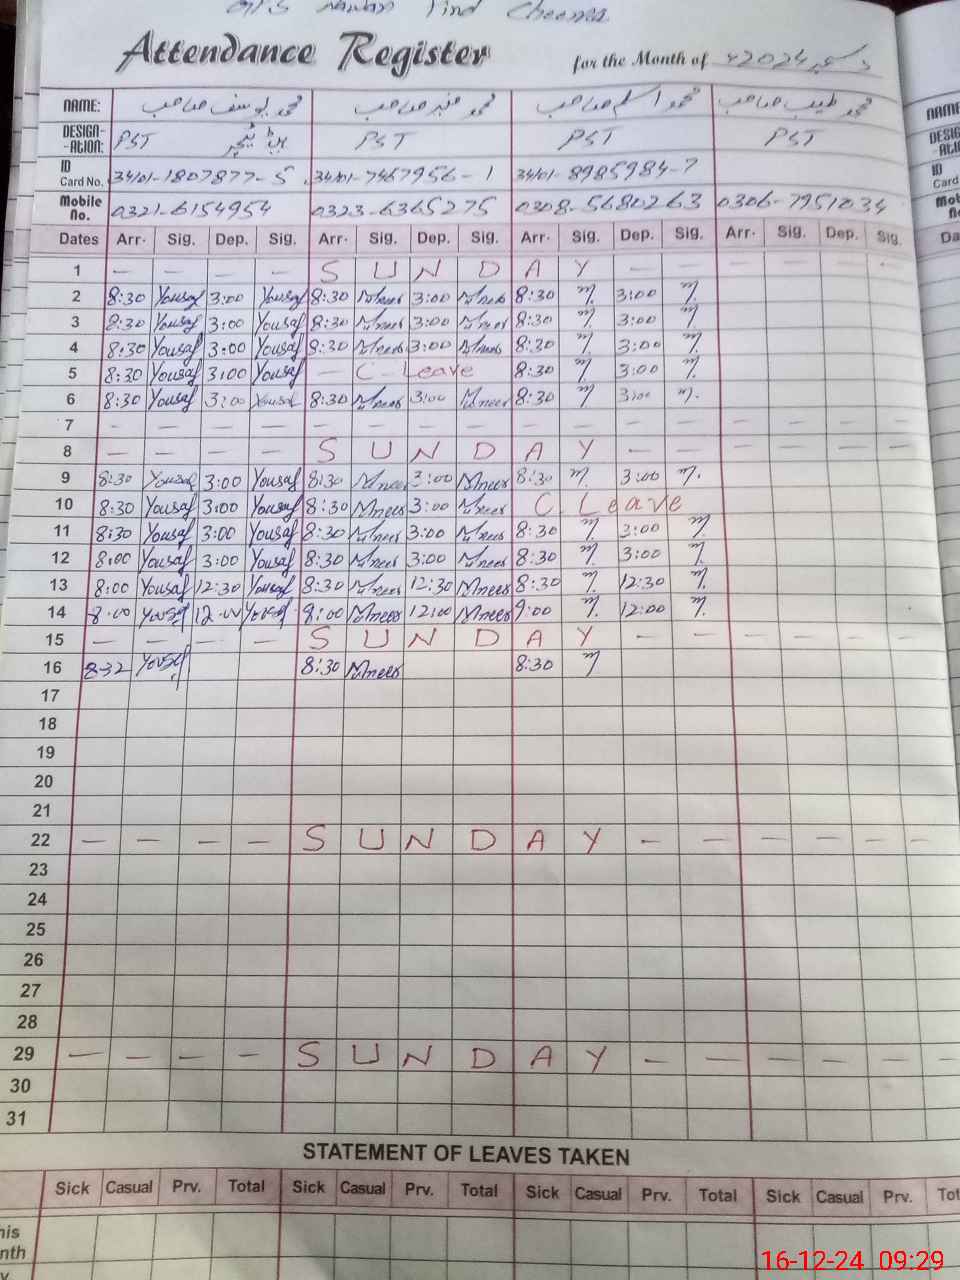 GPS Tind Cheema
Attendance Register for the Month of دسمبر 2024ء
NAME: محمد یوسف صاحب محمد منیر صاحب محمد اسلم صاحب محمد طیب صاحب NAME
DESIGN- -ATION: PST ہیڈ ٹیچر PST PST PST
ID Card No. 34101-1807877-5 34101-7467956-1 34101-8985984-7
Mobile No. 0321-6154954 0323-6365275 0308-5680263 0306-7951034
Dates Arr. Sig. Dep. Sig. Arr. Sig. Dep. Sig. Arr. Sig. Dep. Sig. Arr. Sig. Dep. Sig.
1 — — — — S U N D A Y — — — — —
2 8:30 Yousaf 3:00 Yousaf 8:30 Muneer 3:00 Muneer 8:30 m. 3:00 m.
3 8:30 Yousaf 3:00 Yousaf 8:30 Muneer 3:00 Muneer 8:30 m. 3:00 m.
4 8:30 Yousaf 3:00 Yousaf 8:30 Muneer 3:00 Muneer 8:30 m. 3:00 m.
5 8:30 Yousaf 3:00 Yousaf — C- Leave 8:30 m 3:00 m.
6 8:30 Yousaf 3:00 Yousaf 8:30 Muneer 3:00 Muneer 8:30 m 3:00 m.
7 — — — — — — — — — — — — — — — —
8 — — — — S U N D A Y — — — — — —
9 8:30 Yousaf 3:00 Yousaf 8:30 Muneer 3:00 Muneer 8:30 m. 3:00 m.
10 8:30 Yousaf 3:00 Yousaf 8:30 Muneer 3:00 Muneer C. Leave
11 8:30 Yousaf 3:00 Yousaf 8:30 Muneer 3:00 Muneer 8:30 m. 3:00 m.
12 8:00 Yousaf 3:00 Yousaf 8:30 Muneer 3:00 Muneer 8:30 m. 3:00 m.
13 8:00 Yousaf 12:30 Yousaf 8:30 Muneer 12:30 Muneer 8:30 m. 12:30 m.
14 8:00 Yousaf 12:00 Yousaf 9:00 Muneer 12:00 Muneer 9:00 m. 12:00 m.
15 — — — — S U N D A Y — — — — — —
16 8:32 Yousaf 8:30 Muneer 8:30 m
17
18
19
20
21
22 — — — — S U N D A Y — — — — — —
23
24
25
26
27
28
29 — — — — S U N D A Y — — — — — —
30
31
STATEMENT OF LEAVES TAKEN
Sick Casual Prv. Total Sick Casual Prv. Total Sick Casual Prv. Total Sick Casual Prv. Tot
16-12-24 09:29